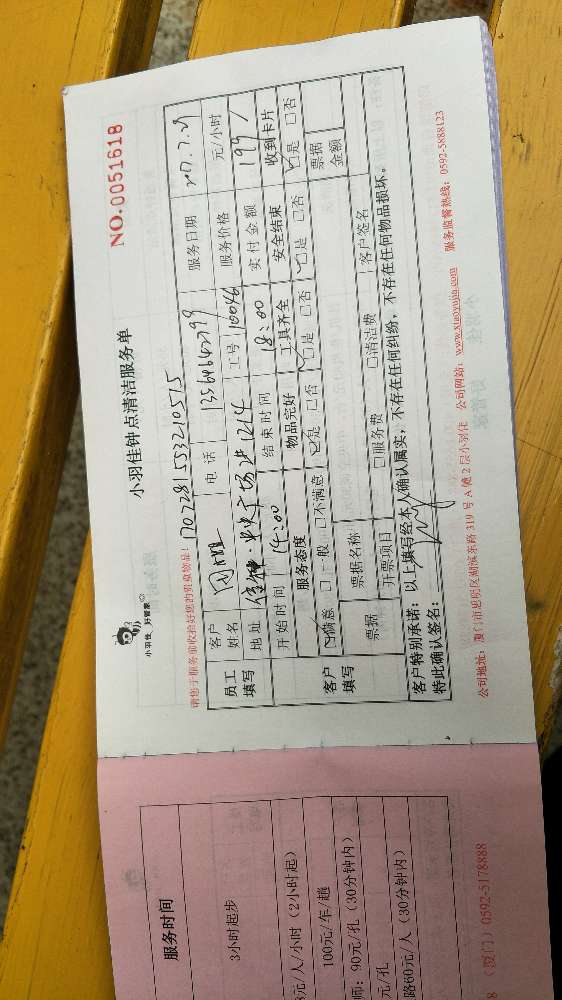 小羽佳 好管家
小羽佳钟点清洁服务单
NO.0051618
请您于服务前收拾好您的贵重物品! 1702281553210515
员工填写 客户姓名 电话 服务日期
地址 工号 10046 服务价格 元/小时
开始时间 14:00 结束时间 18:00 实付金额 199
客户填写 服务态度 物品完好 工具齐全 安全结束 收到卡片
☑满意 □一般 □不满意 ☑是 □否 ☑是 □否 ☑是 □否 ☑是 □否
票据 票据名称 票据金额
开票项目 □服务费 □清洁费 客户签名
客户特别承诺:以上填写经本人确认属实,不存在任何纠纷,不存在任何物品损坏。
特此确认签名:
公司地址:厦门市思明区湖滨东路 319 号 A 幢 2 层小羽佳 公司网站:www.xiaoyujia.com 服务监督热线:0592-5888123
服务时间
3小时起步
元/人/小时(2小时起)
100元/车/趟
师:90元/孔(30分钟内)
元/孔
路60元/人(30分钟内)
(厦门)0592-5178888